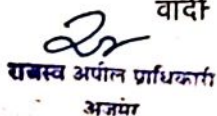 वादी
राजस्व अपील प्राधिकारी
अजमेर